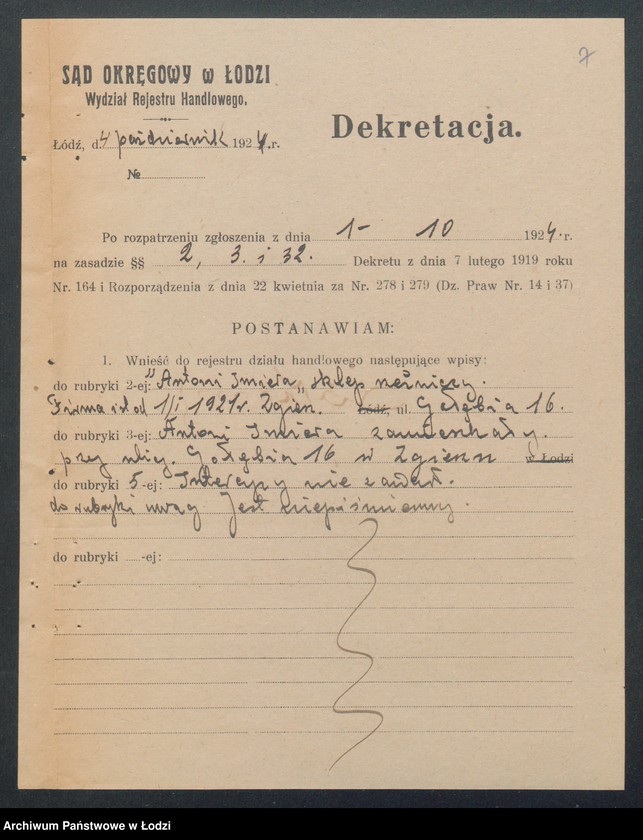 7
SĄD OKRĘGOWY w ŁODZI
Wydział Rejestru Handlowego.
Dekretacja.
Łódź, d. 4 październik 1924.r.
№
Po rozpatrzeniu zgłoszenia z dnia 1- 10 1924.r.
na zasadzie §§ 2, 3. i 32. Dekretu z dnia 7 lutego 1919 roku
Nr. 164 i Rozporządzenia z dnia 22 kwietnia za Nr. 278 i 279 (Dz. Praw Nr. 14 i 37)
POSTANAWIAM:
1. Wnieść do rejestru działu handlowego następujące wpisy:
do rubryki 2-ej: "Antoni Imiera" sklep rzeźniczy.
Firma istn. od 1/I 1921 r. Zgierz. Łódź, ul. Gołębia 16.
do rubryki 3-ej: Antoni Imiera zamieszkały.
przy ulicy. Gołębia 16 w Zgierzu w Łodzi
do rubryki 5-ej: Intercyzy nie zawarł.
do rubryki uwag Jest niepiśmienny.
do rubryki -ej:
Archiwum Państwowe w Łodzi